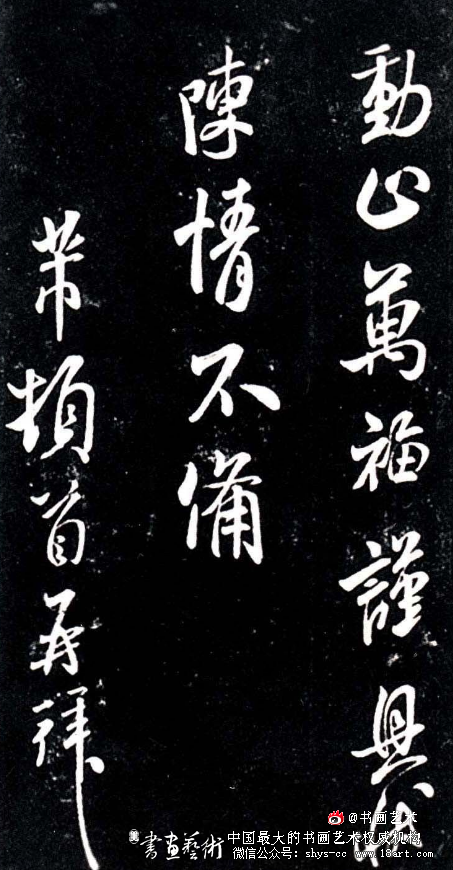 動止萬福謹具
陳情不備
芾頓首再拜
@书画艺术
書畫藝術 中国最大的书画艺术权威机构
微信公众号: shys-cc www.18art.com